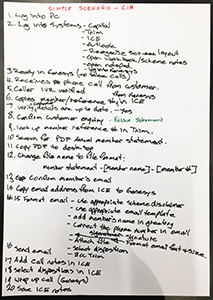 SIMPLE SCENARIO - CIA
1. Log into PC
2. Log into systems - Capital
- Trim
- ICE
- Outlook
- Reorganise screens layout
- Open workbook/scheme notes
- open
- Log into Genesys
3 Ready in Genesys (to take calls)
4. Receives phone call from customer.
5. Caller IVR verified from
6. Copies member/reference # in ICE
7. Verify details are up to date. - Yes
8. Confirm customer enquiry - Reissue statement
9. Look up member reference # in Trim.
10 Search for PDF annual member statement.
11 Copy PDF to desktop
12. Change file name to file format:
member statement - [member name] - [member #]
13 Confirm member's email
14 Copy email address from ICE to Genesys
15 Format email - Use appropriate scheme disclaimer
- Use appropriate email template
- add member's name in greeting
- Correct the phone number in email
- Signature
- Attach file - Format email font & size.
16 Send email - Select disposition
- BCC Trim
17 Add call notes in ICE
18 Select disposition in ICE
19 Wrap up call (Genesys)
20 Save ICE notes